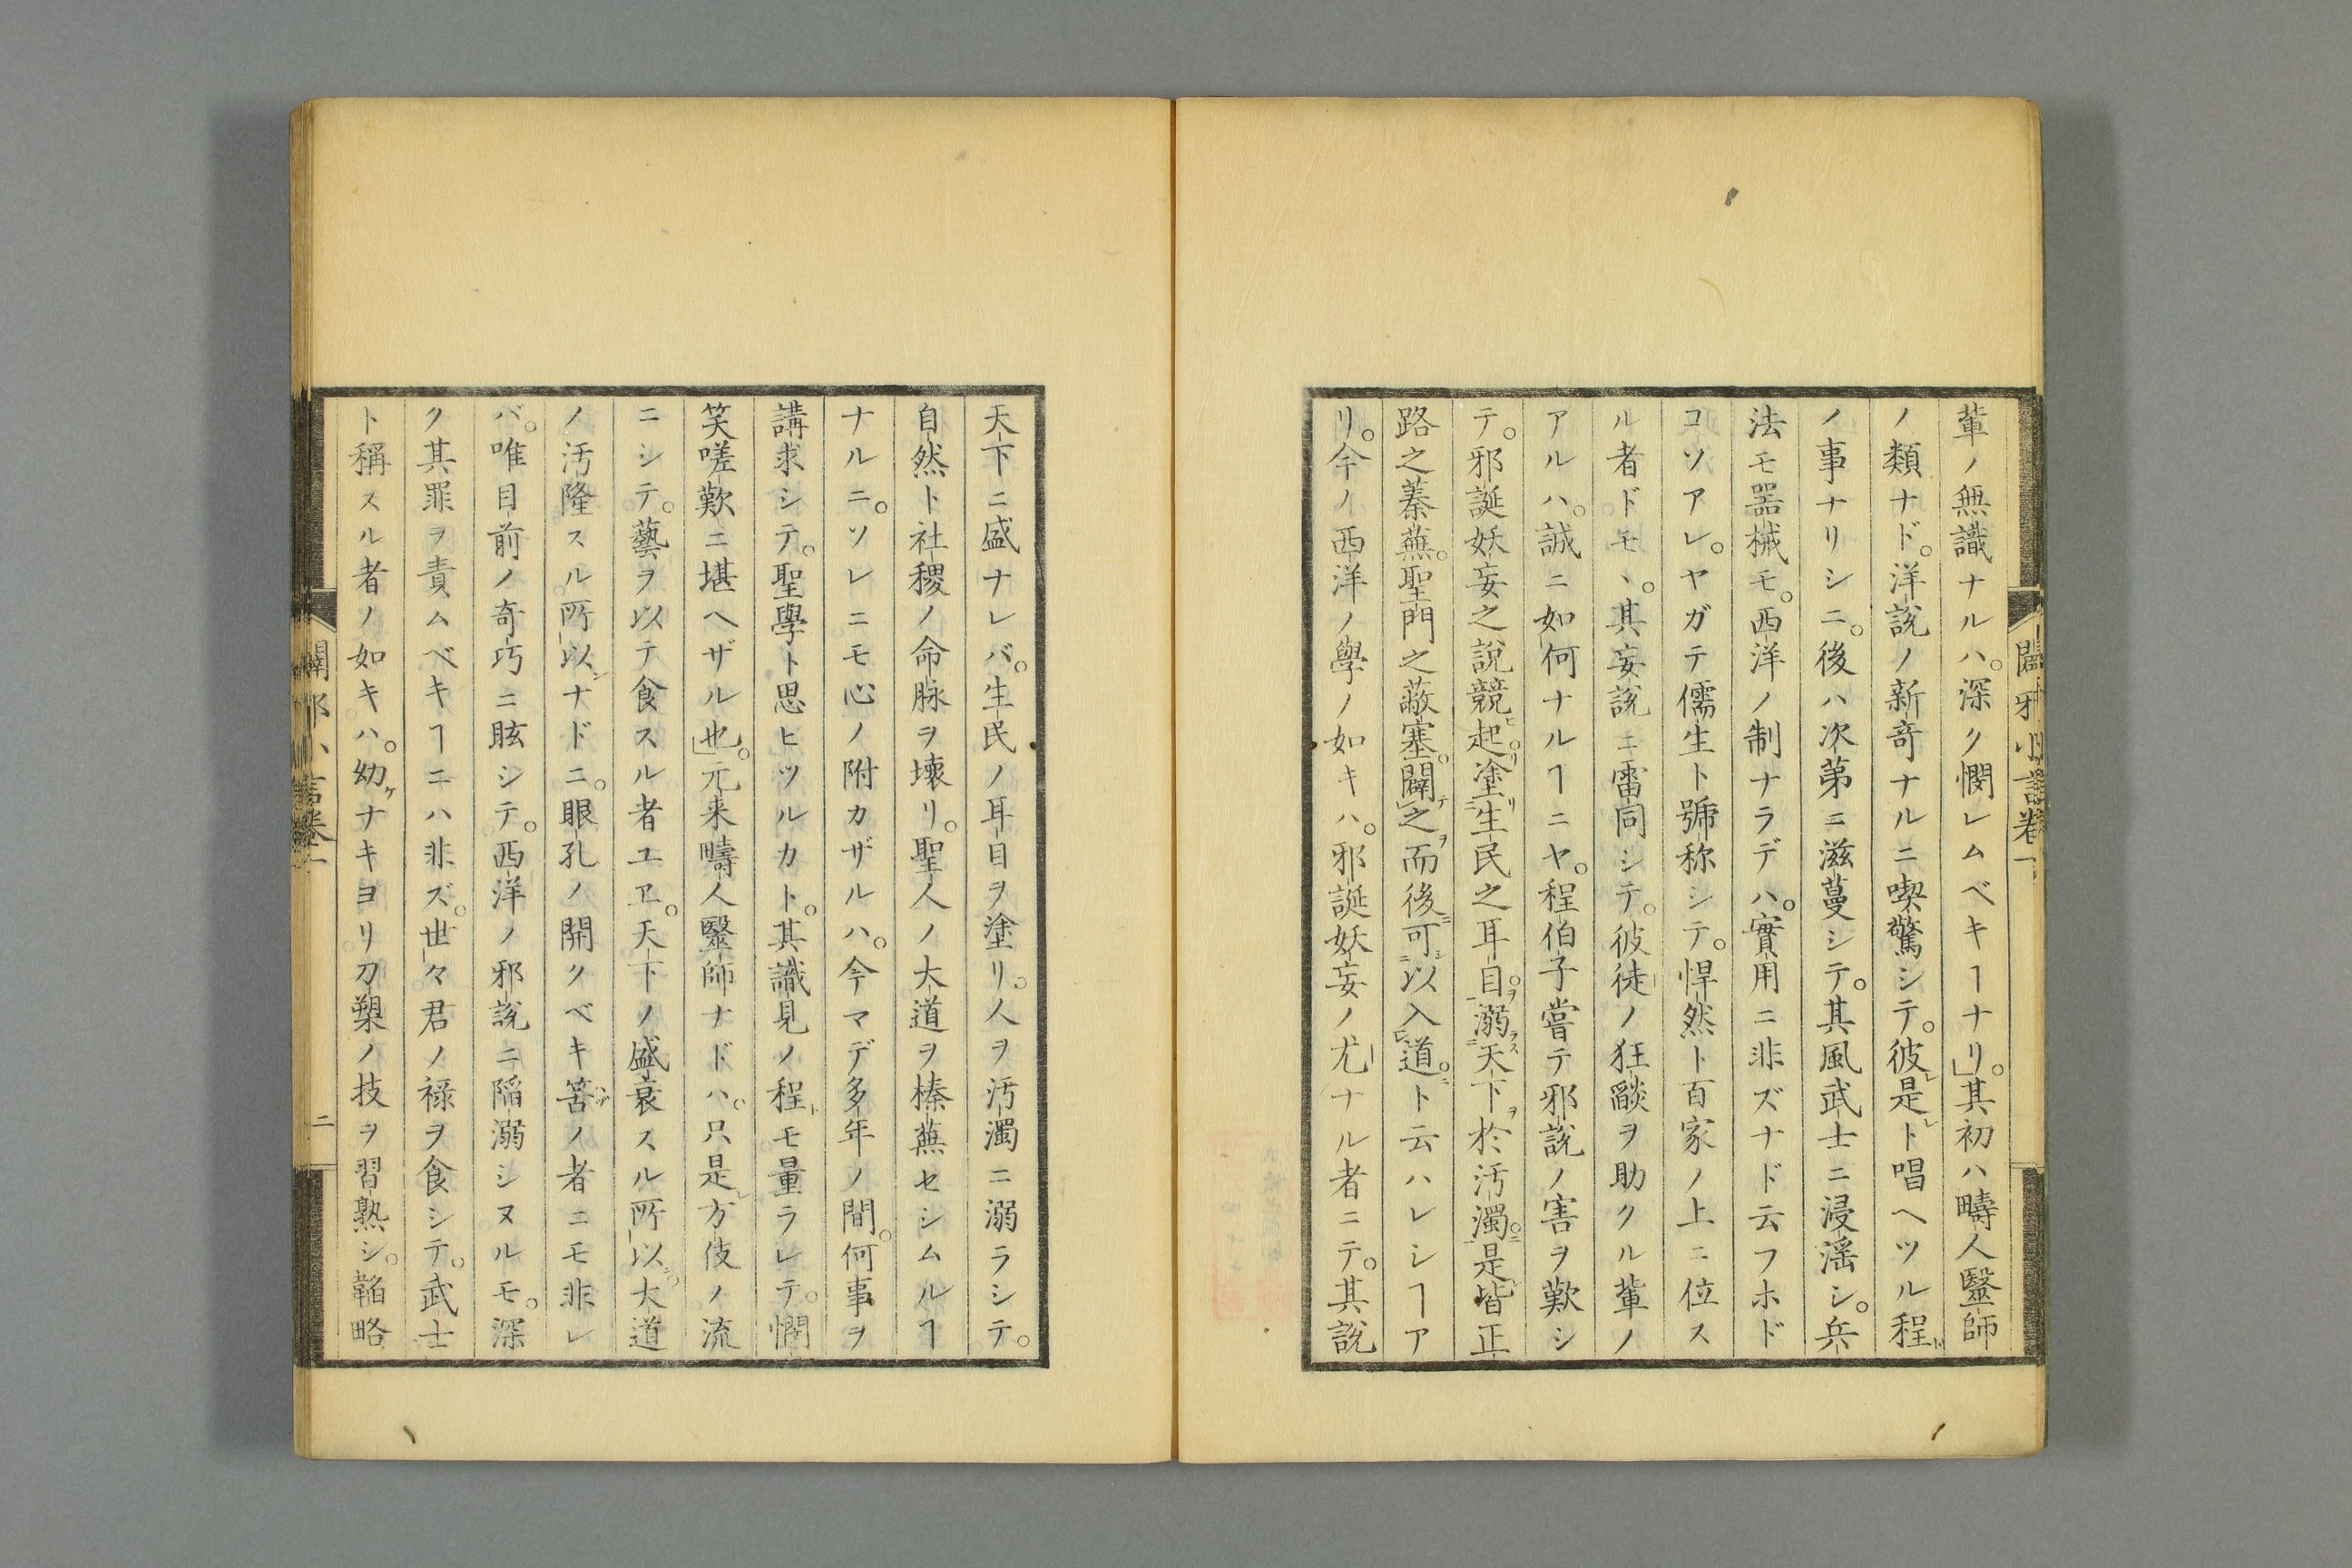 輩ノ無識ナルハ。深ク憫レムベキヿナリ。」其初ハ疇人毉師
ノ類ナド。洋說ノ新竒ナルニ喫驚シテ。彼レ是レト唱ヘツル程ド
ノ事ナリシニ。後ハ次苐ニ滋蔓シテ。其風武士ニ浸滛シ。兵
法モ噐械モ。西洋ノ制ナラデハ。實用ニ非ズナド云フホド
コソアレ。ヤガテ儒生ト號称シテ。悍然ト百家ノ上ニ位ス
ル者ドモヽ。其妄說ニ雷同シテ。彼徒ノ狂燄ヲ助クル軰ノ
アルハ。誠ニ如何ナルヿニヤ。程伯子嘗テ邪說ノ害ヲ歎シ
テ。邪誕妖妄之說競ヒ起リ。塗リ二生民之耳目ヲ一。溺ラス二天下ヲ於汚濁ニ一。是レ皆正
路之蓁蕪。聖門之蔽塞。闢テ之ヲ而後ニ可シ二以入ル一道ニ。ト云ハレシヿア
リ。今ノ西洋ノ學ノ如キハ。邪誕妖妄ノ尤ナル者ニテ。其說
闢邪小言卷一
天下ニ盛ナレバ。生民ノ耳目ヲ塗リ。人ヲ汚濁ニ溺ラシテ。
自然ト社稷ノ命脉ヲ壞リ。聖人ノ大道ヲ榛蕪セシムルヿ
ナルニ。ソレニモ心ノ附カザルハ。今マデ多年ノ間。何事ヲ
講求シテ。聖學ト思ヒツルカト。其識見ノ程トモ量ラレテ。憫
笑嗟歎ニ堪ヘザル也。」元来疇人毉師ナドハ。只是レ方伎ノ流
ニシテ。藝ヲ以テ食スル者ユヱ。天下ノ盛衰スル所以。大道
ノ汚隆スル所以ンナドニ。眼孔ノ開クベキ筈ハヅノ者ニモ非レ
バ。唯目前ノ奇巧ニ眩シテ。西洋ノ邪說ニ陷溺シヌルモ。深
ク其罪ヲ責ムベキヿニハ非ズ。世々君ノ祿ヲ食シテ。武士
ト稱スル者ノ如キハ。幼ケナキヨリ刀槊ノ技ヲ習熟シ。韜略
闢邪小言卷一 二